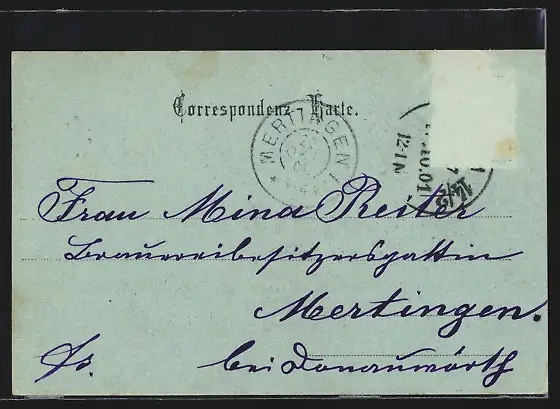 Correspondenz-Karte.
MERTINGEN
12-1N
10.01
Frau Mina Reiter
Brauereibesitzersgattin
Mertingen.
bei Donauwörth